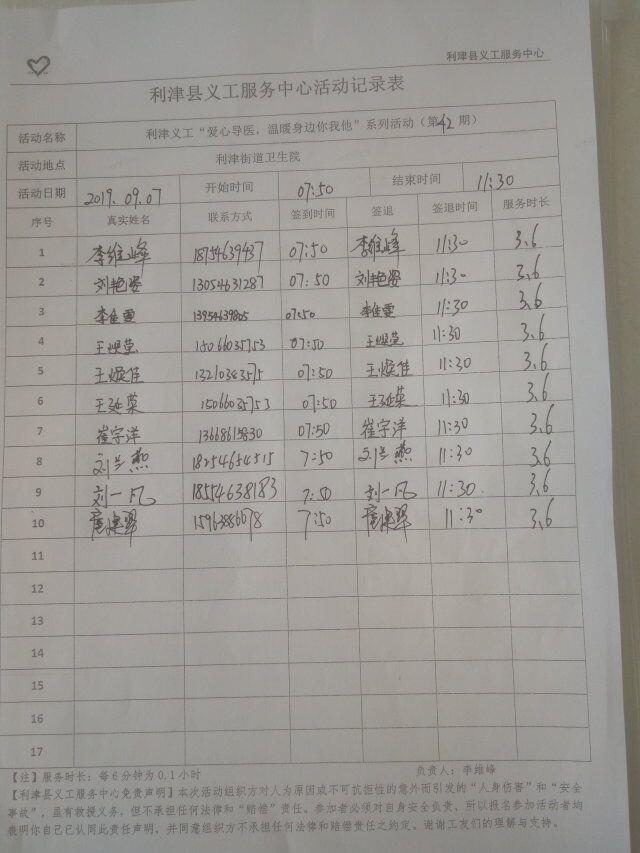 利津县义工服务中心
利津县义工服务中心活动记录表
活动名称 利津义工“爱心导医,温暖身边你我他”系列活动(第42期)
活动地点 利津街道卫生院
活动日期 2019.09.07 开始时间 07:50 结束时间 11:30
序号 真实姓名 联系方式 签到时间 签退 签退时间 服务时长
1 李维峰 18754639437 07:50 李维峰 11:30 3.6
2 刘艳姿 13054631287 07:50 刘艳姿 11:30 3.6
3 李佳雯 13954639805 07:50 李佳雯 11:30 3.6
4 王煜莹 15066035753 07:50 王煜莹 11:30 3.6
5 王焕佳 13210343575 07:50 王焕佳 11:30 3.6
6 王延菜 15066035753 07:50 王延菜 11:30 3.6
7 崔宇洋 13668615830 07:50 崔宇洋 11:30 3.6
8 刘兰燕 18254654515 7:50 刘兰燕 11:30 3.6
9 刘一凡 18554638183 7:50 刘一凡 11:30 3.6
10 15963886678 7:50 11:30 3.6
11
12
13
14
15
16
17
【注】服务时长:每6分钟为0.1小时 负责人:李维峰
【利津县义工服务中心免责声明】本次活动组织方对人为原因或不可抗担性的意外而引发的“人身伤害”和“安全
事故”,虽有救援义务,但不承担任何法律和“赔偿”责任。参加者必须对自身安全负责,所以报名参加活动者均
表明你自己已认同此责任声明,并同意组织方不承担任何法律和赔偿责任之约定。谢谢工友们的理解与支持。